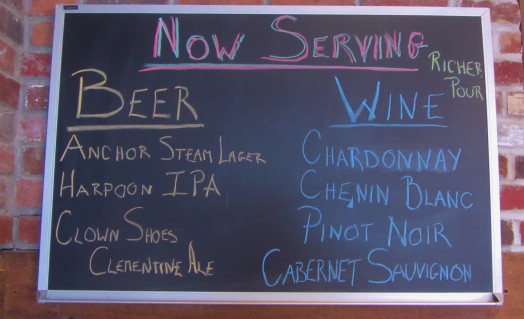 NOW SERVING
RICHER
POUR
BEER
ANCHOR STEAM LAGER
HARPOON IPA
CLOWN SHOES
CLEMENTINE ALE
WINE
CHARDONNAY
CHENIN BLANC
PINOT NOIR
CABERNET SAUVIGNON